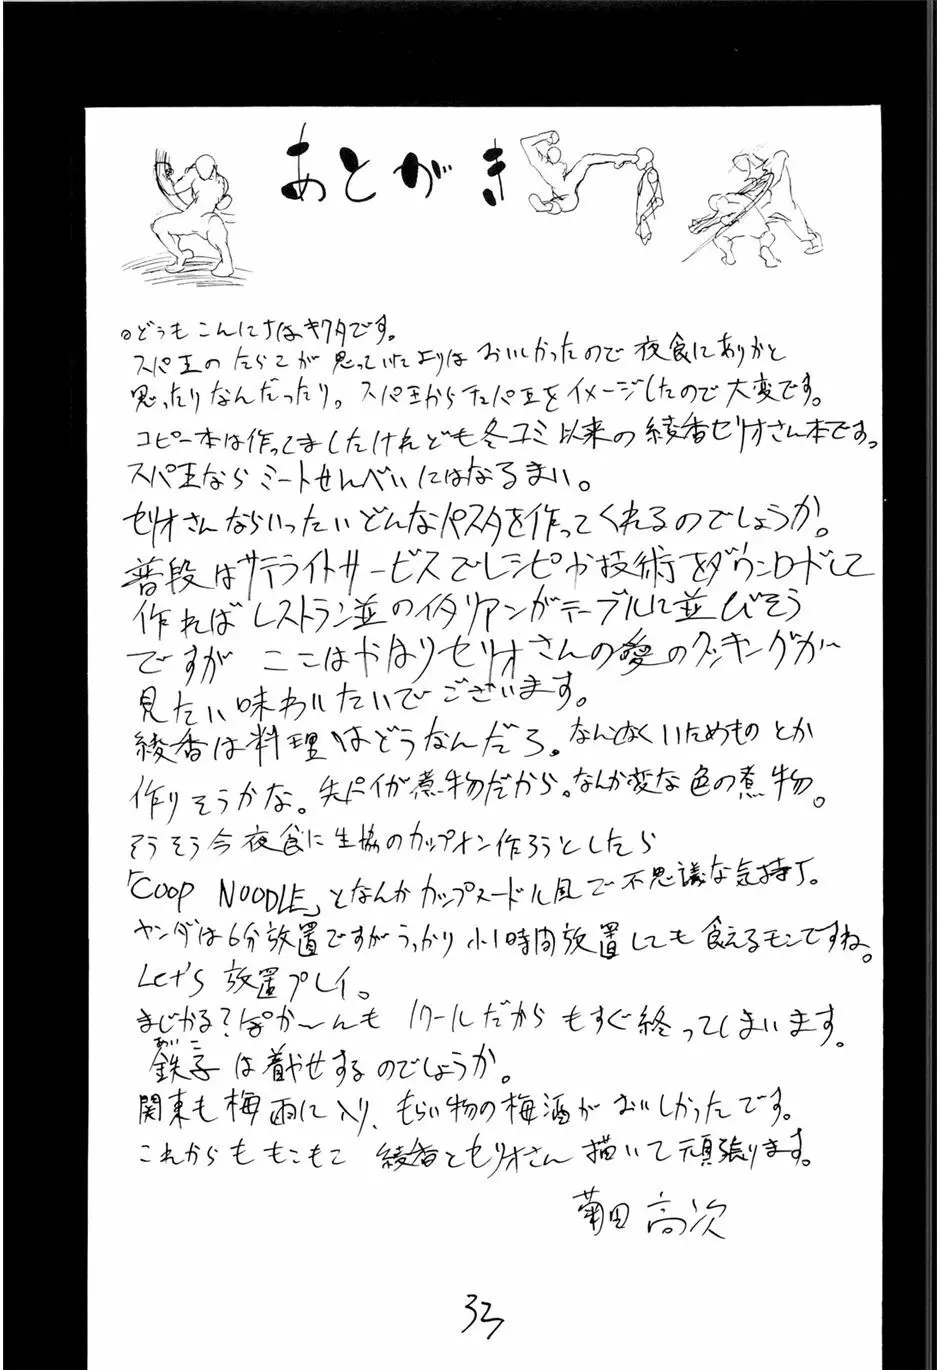 あとがき
○どうもこんにちはキクタです。
スパ王のたらこが思っていたよりはおいしかったので夜食にありかと
思ったりなんだったり。スパ王からをイメージしたので大変です。
コピー本は作ってましたけれども冬コミ以来の綾香セリオさん本です。
スパ王ならミートせんべいにはなるまい。
セリオさんならいったいどんなパスタを作ってくれるのでしょうか。
普段はサテライトサービスでレシピや技術をダウンロードして
作ればレストラン並のイタリアンがテーブルに並びそう
ですが ここはやはりセリオさんの愛のクッキングが
見たい味わいたいでございます。
綾香は料理はどうなんだろ。なんとなくいためものとか
作りそうかな。先パイが煮物だから。なんか変な色の煮物。
そうそう今夜食に生協のカップオン作ろうとしたら
「COOP NOODLE」となんかカップヌードル風で不思議な気持ち。
は6分放置ですがうっかり小1時間放置しても食えるモンですね。
Let's 放置プレイ。
まじかる?ぽか〜んも 1クールだからもすぐ終ってしまいます。
鉄子は着やせするのでしょうか。
関東も梅雨に入り、もらい物の梅酒がおいしかったです。
これからももこもこ 綾香とセリオさん描いて頑張ります。
菊田 高次
33